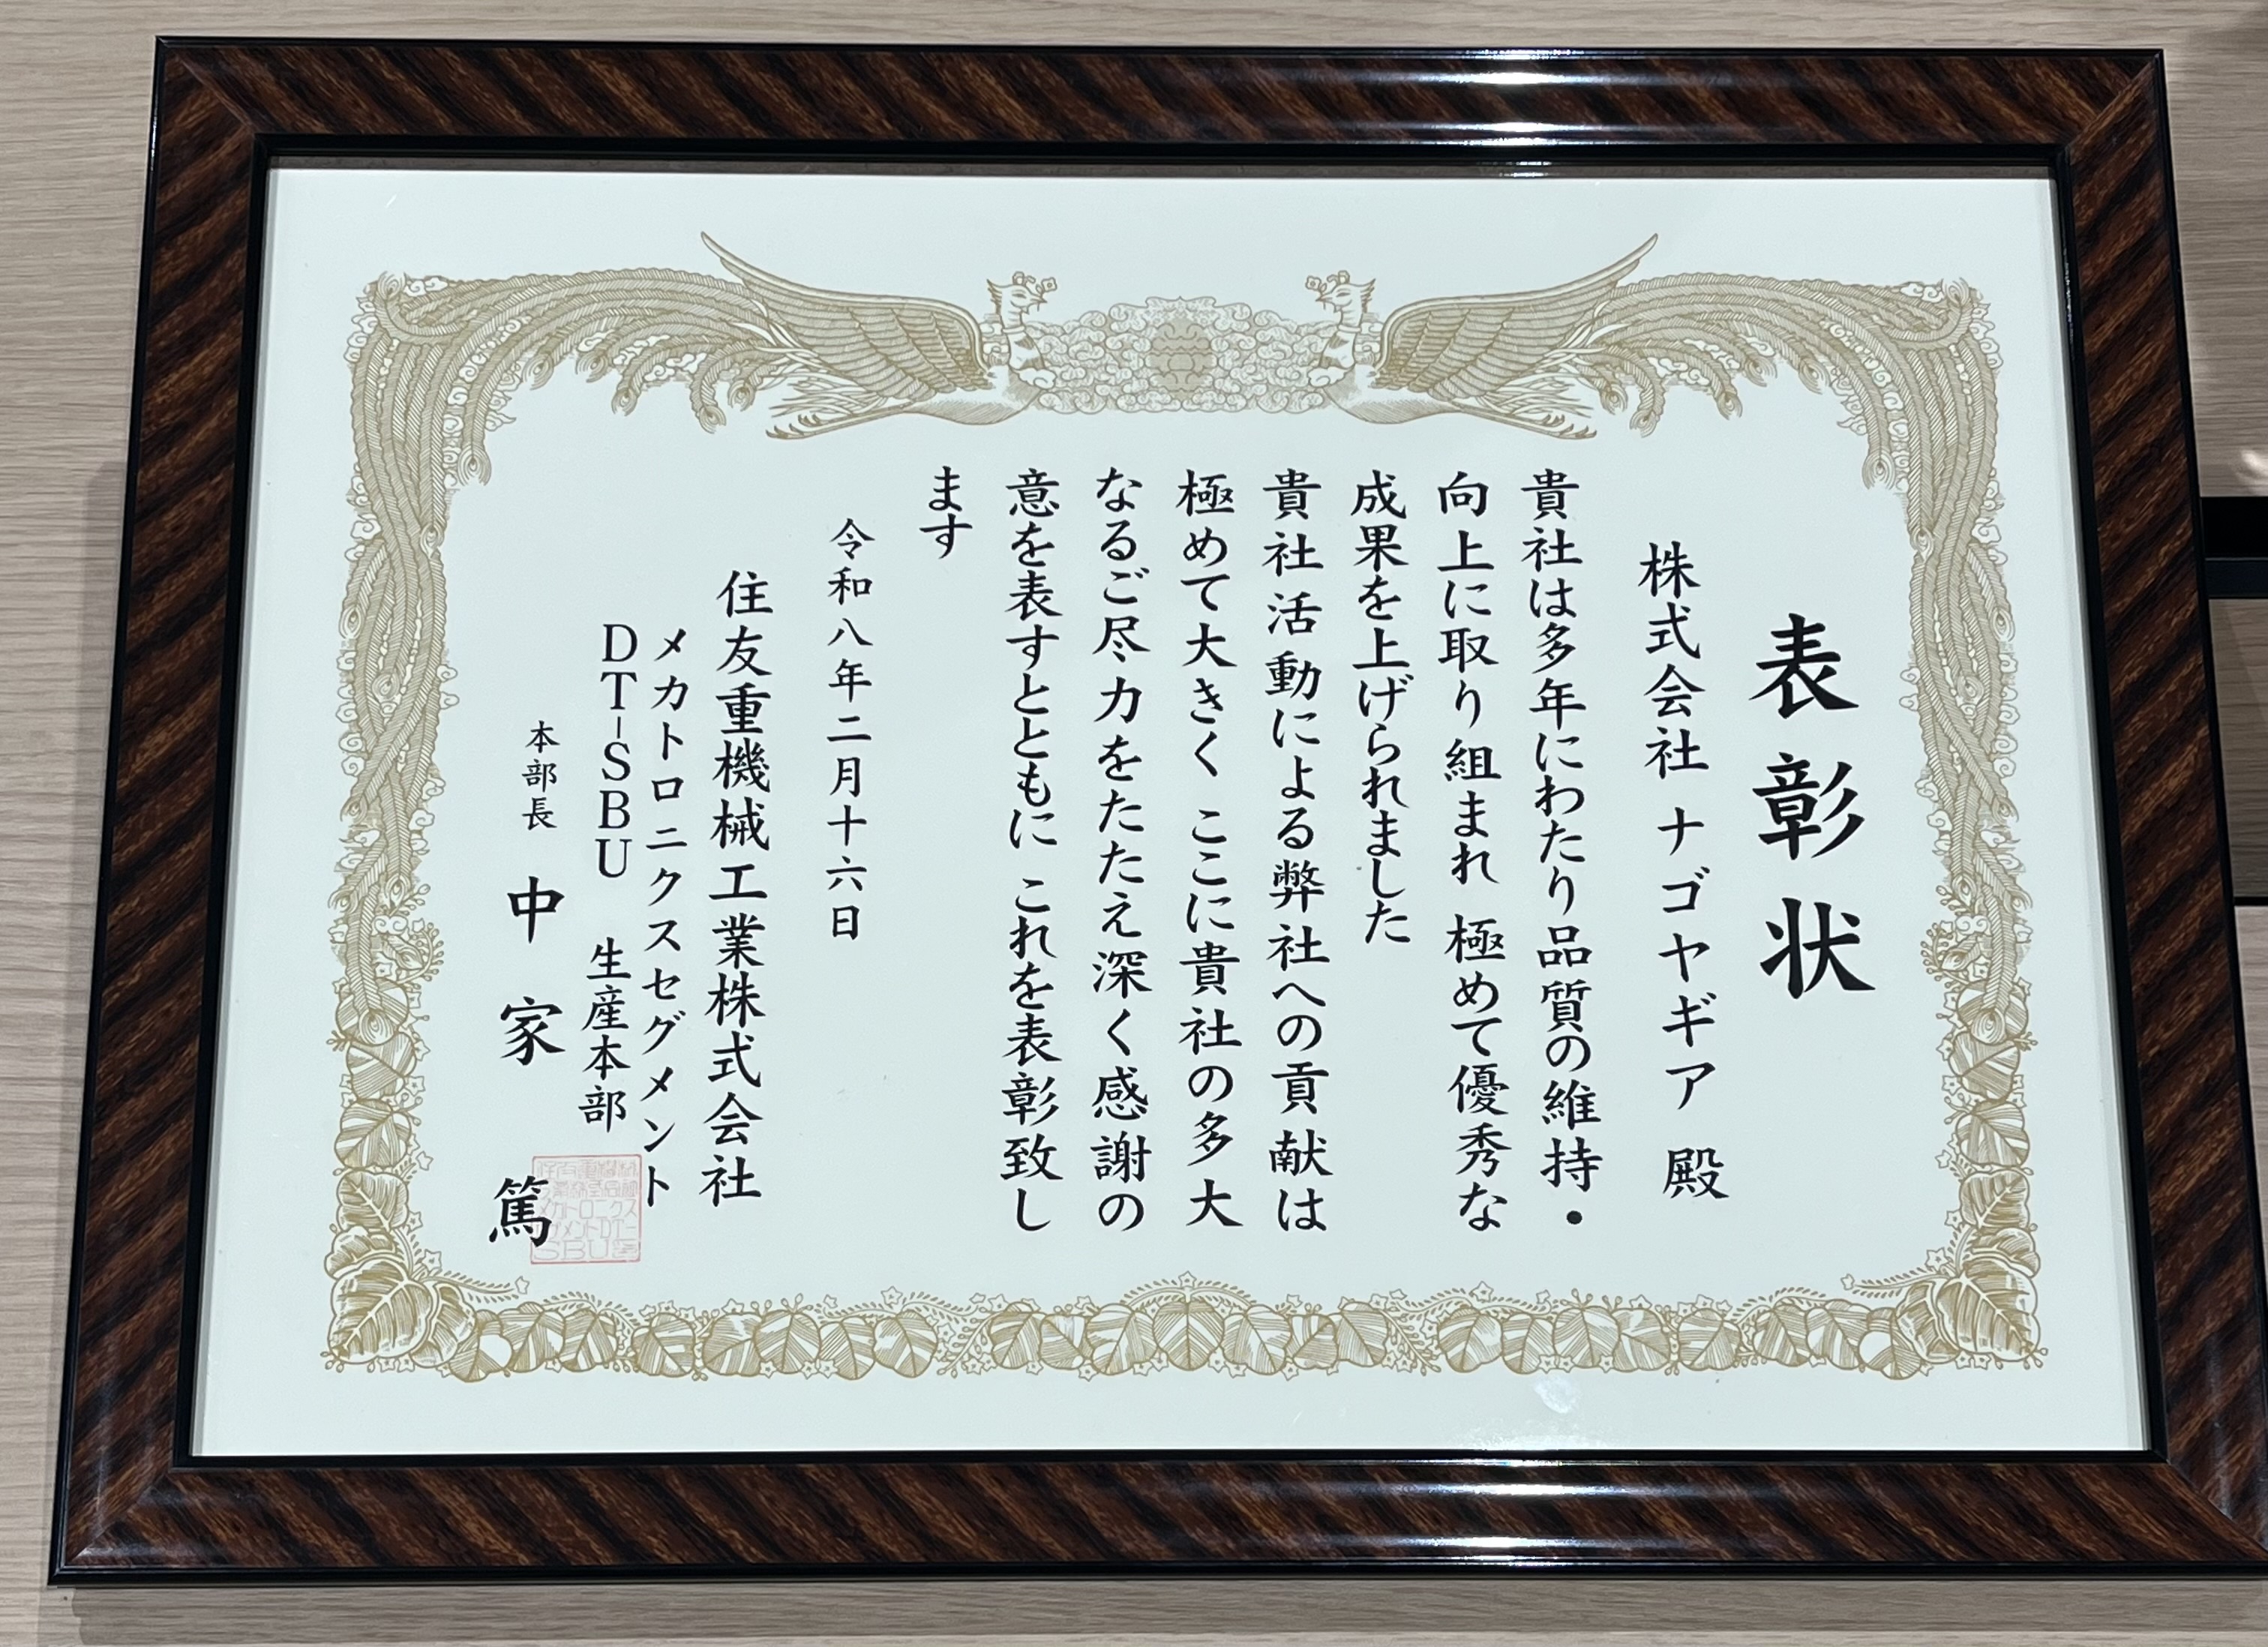 表彰状
株式会社 ナゴヤギア 殿
貴社は多年にわたり品質の維持・
向上に取り組まれ 極めて優秀な
成果を上げられました
貴社活動による弊社への貢献は
極めて大きく ここに貴社の多大
なるご尽力をたたえ深く感謝の
意を表すとともに これを表彰致し
ます
令和八年二月十六日
住友重機械工業株式会社
メカトロニクスセグメント
DT-SBU 生産本部
本部長 中家 篤